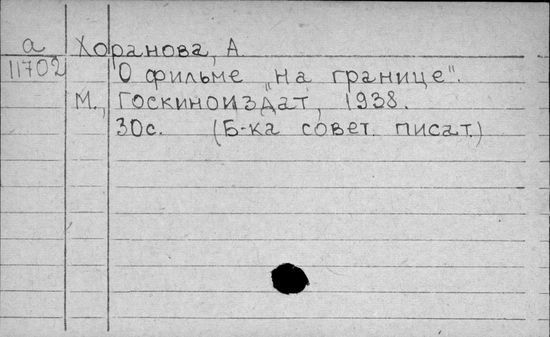 а Хоранова, А
11702 О фильме „на границе".
М., Госкиноиздат, 1938.
30с. (Б-ка совет. писат.)